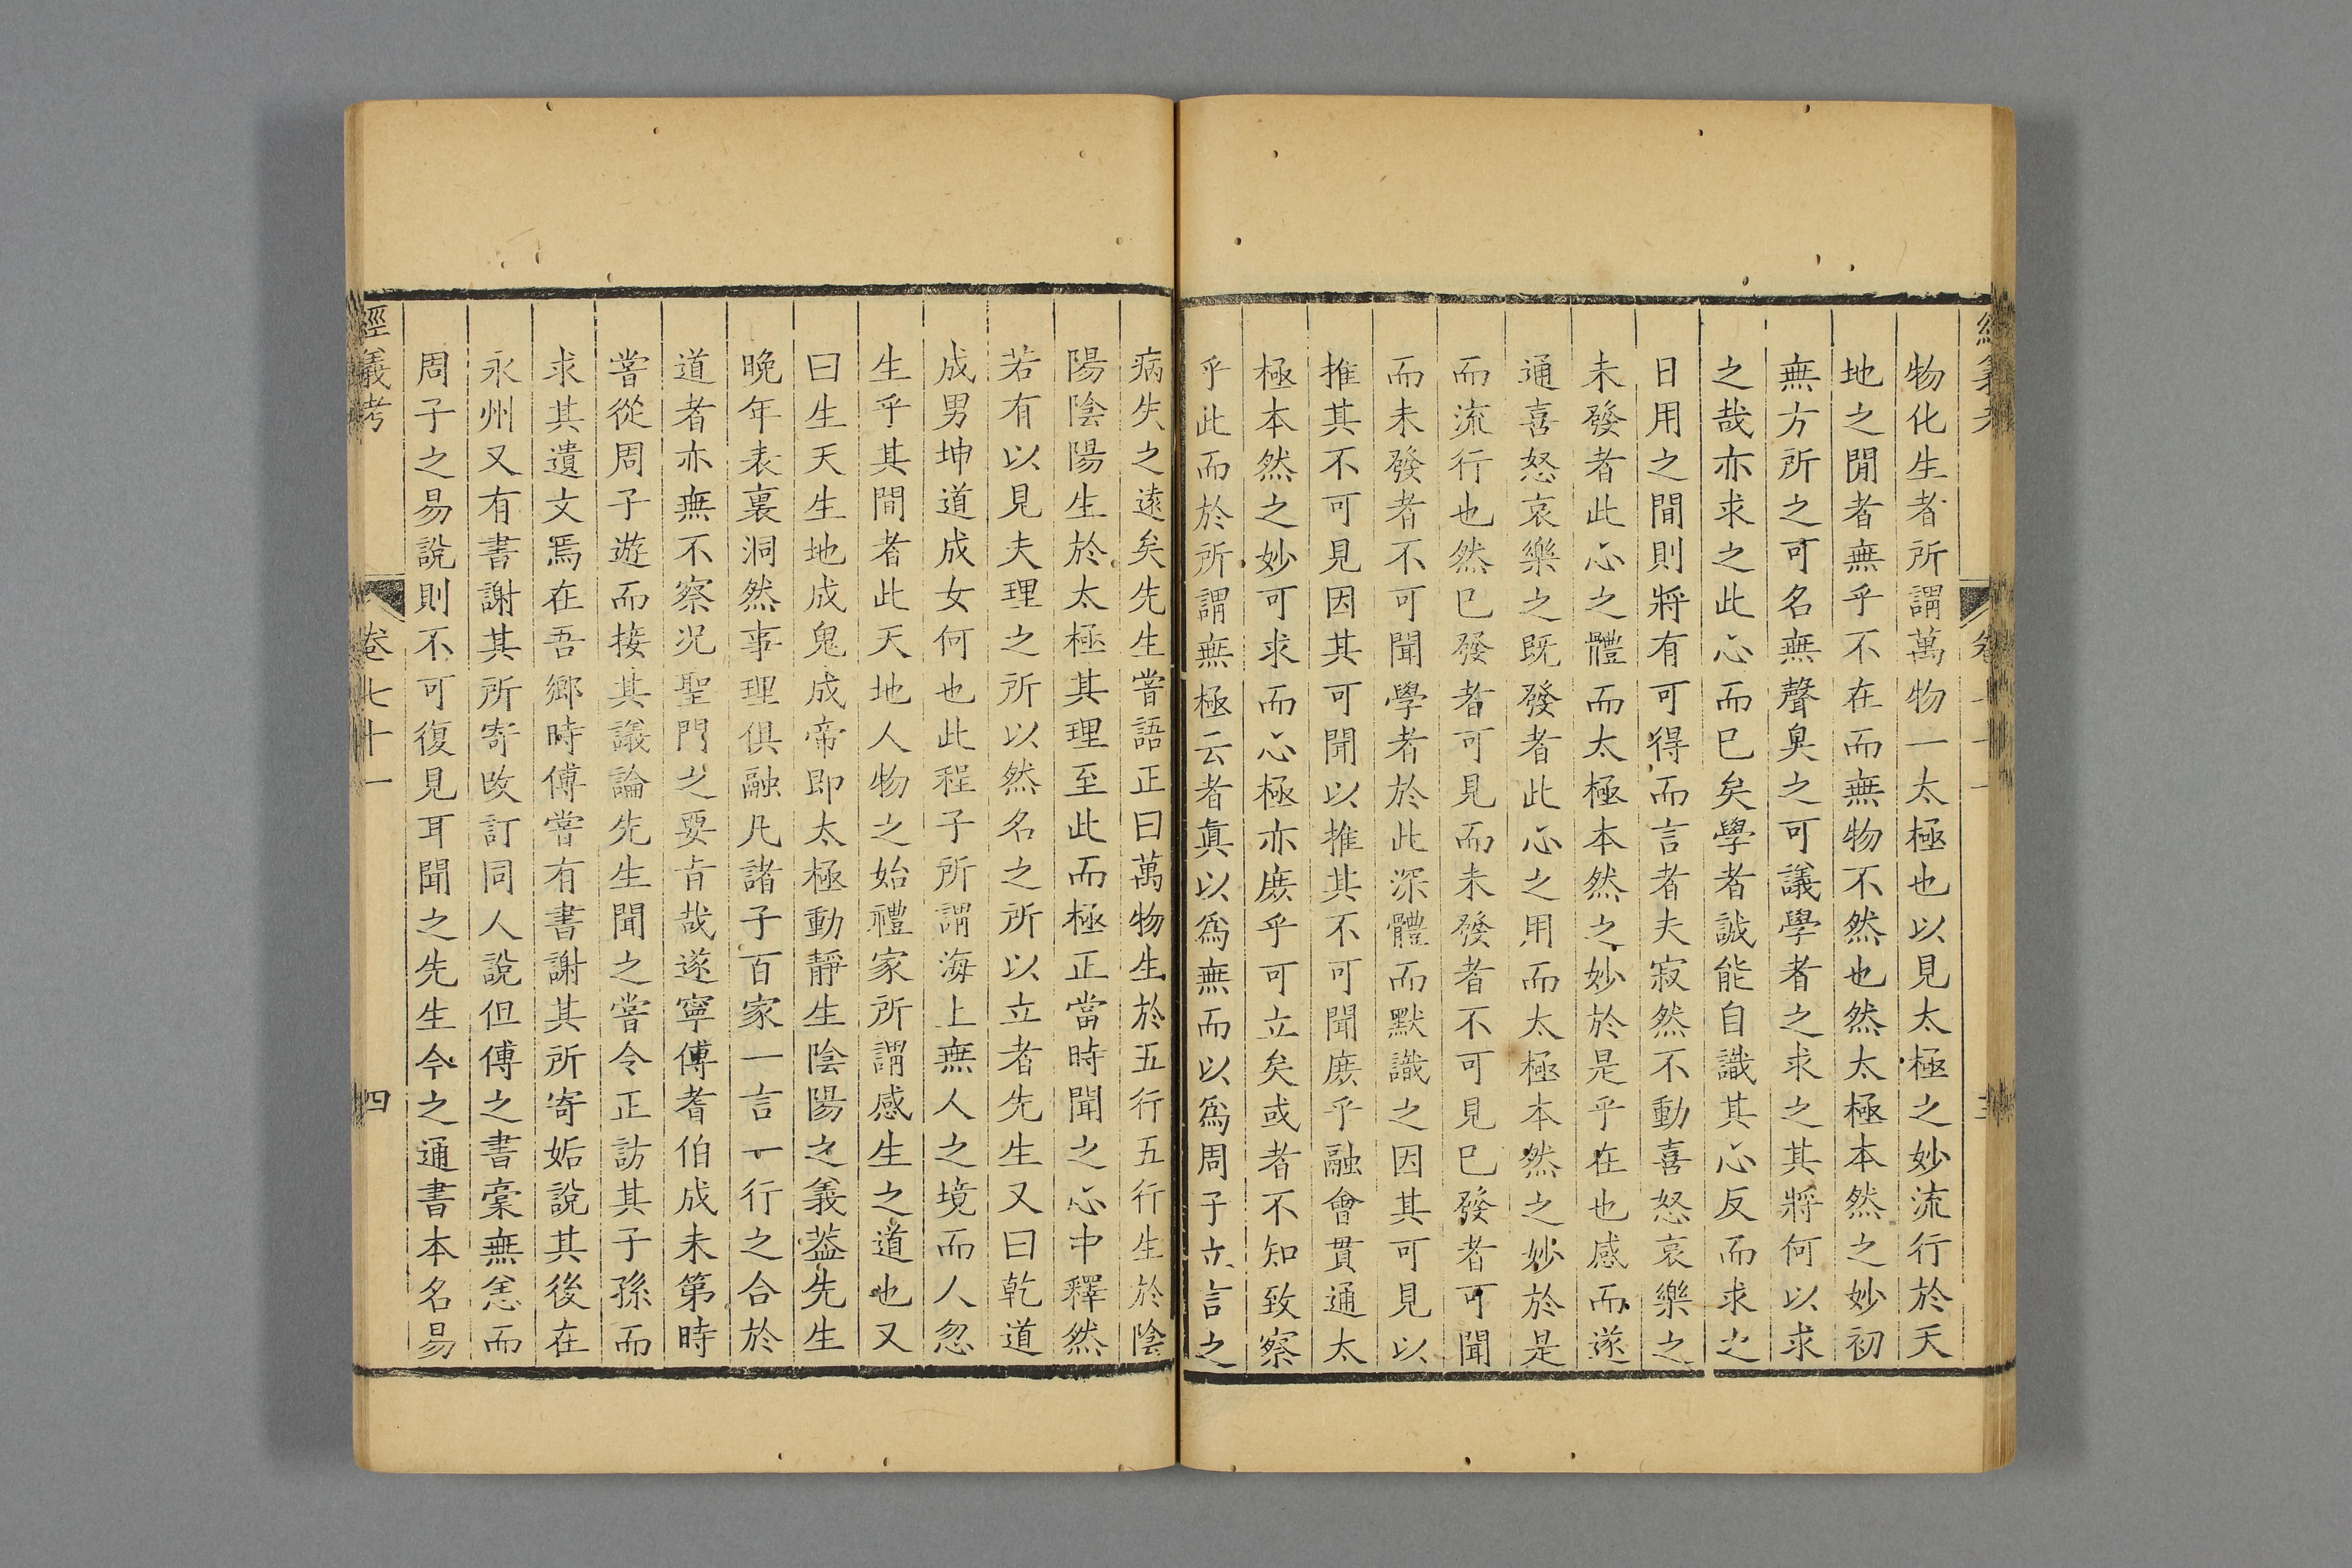 物化生者所謂萬物一太極也以見太極之妙流行於天
地之閒者無乎不在而無物不然也然太極本然之妙初
無方所之可名無聲臭之可議學者之求之其將何以求
之哉亦求之此心而已矣學者誠能自識其心反而求之
日用之閒則將有可得而言者夫寂然不動喜怒哀樂之
未發者此心之體而太極本然之妙於是乎在也感而遂
通喜怒哀樂之既發者此心之用而太極本然之妙於是
而流行也然已發者可見而未發者不可見已發者可聞
而未發者不可聞學者於此深體而默識之因其可見以
推其不可見因其可聞以推其不可聞庶乎融會貫通太
極本然之妙可求而心極亦庶乎可立矣或者不知致察
乎此而於所謂無極云者眞以爲無而以爲周子立言之
病失之遠矣先生嘗語正曰萬物生於五行五行生於陰
陽陰陽生於太極其理至此而極正當時聞之心中釋然
若有以見夫理之所以然名之所以立者先生又曰乾道
成男坤道成女何也此程子所謂海上無人之境而人忽
生乎其間者此天地人物之始禮家所謂感生之道也又
曰生天生地成鬼成帝即太極動靜生陰陽之義蓋先生
晚年表裏洞然事理俱融凡諸子百家一言一行之合於
道者亦無不察况聖門之要旨哉遂寧傅耆伯成未第時
嘗從周子遊而接其議論先生聞之嘗令正訪其子孫而
求其遺文焉在吾鄉時傅嘗有書謝其所寄姤說其後在
永州又有書謝其所寄改訂同人說但傅之書稾無恙而
周子之易說則不可復見耳聞之先生今之通書本名易
經義考 卷七十一 四